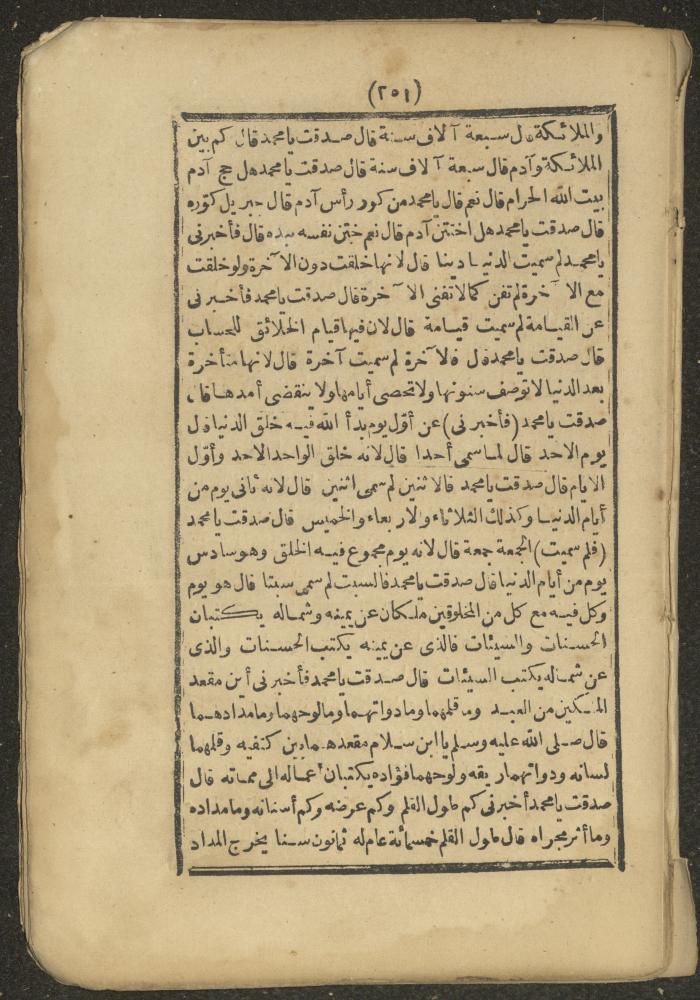 (٢٥١)
والملائكة قال سبعة آلاف سنة قال صدقت يا محمد قال كم بين
الملائكة وآدم قال سبعة آلاف سنة قال صدقت يا محمد هل حج آدم
بيت الله الحرام قال نعم قال يا محمد من كور رأس آدم قال جبريل كوره
قال صدقت يا محمد هل اختتن آدم قال نعم ختن نفسه بيده قال فأخبرنى
يا محمد لم سميت الدنيا دينا قال لانها خلقت دون الآخرة ولو خلقت
مع الآخرة لم تفن كما لا تفنى الآخرة قال صدقت يا محمد فأخبرنى
عن القيامة لم سميت قيامة قال لان فيها قيام الخلائق للحساب
قال صدقت يا محمد قال فالآخرة لم سميت آخرة قال لانها متأخرة
بعد الدنيا لا توصف سنونها ولا تحصى أيامها ولا ينقضى أمدها قال
صدقت يا محمد (فأخبرنى) عن أوّل يوم بدأ الله فيه خلق الدنيا قال
يوم الاحد قال لما سمى أحدا قال لانه خلق الواحد الاحد وأوّل
الايام قال صدقت يا محمد فالاثنين لم سمى اثنين قال لانه ثانى يوم من
أيام الدنيا وكذلك الثلاثاء والاربعاء والخميس قال صدقت يا محمد
(فلم سميت) الجمعة جمعة قال لانه يوم مجموع فيه الخلق وهو سادس
يوم من أيام الدنيا قال صدقت يا محمد فالسبت لم سمى سبتا قال هو يوم
وكل فيه مع كل من المخلوقين ملكان عن يمينه وشماله يكتبان
الحسنات والسيئات فالذى عن يمينه يكتب الحسنات والذى
عن شماله يكتب السيئات قال صدقت يا محمد فأخبرنى أين مقعد
الملكين من العبد وما قلمهما وما دواتهما وما لوحهما وما مدادهما
قال صلى الله عليه وسلم يا ابن سلام مقعدهما بين كتفيه وقلمهما
لسانه ودواتهما ريقه ولوحهما فؤاده يكتبان أعماله الى مماته قال
صدقت يا محمد أخبرنى كم طول القلم وكم عرضه وكم أسنانه وما مداده
وما أثر مجراه قال طول القلم خمسمائة عام له ثمانون سنا يخرج المداد